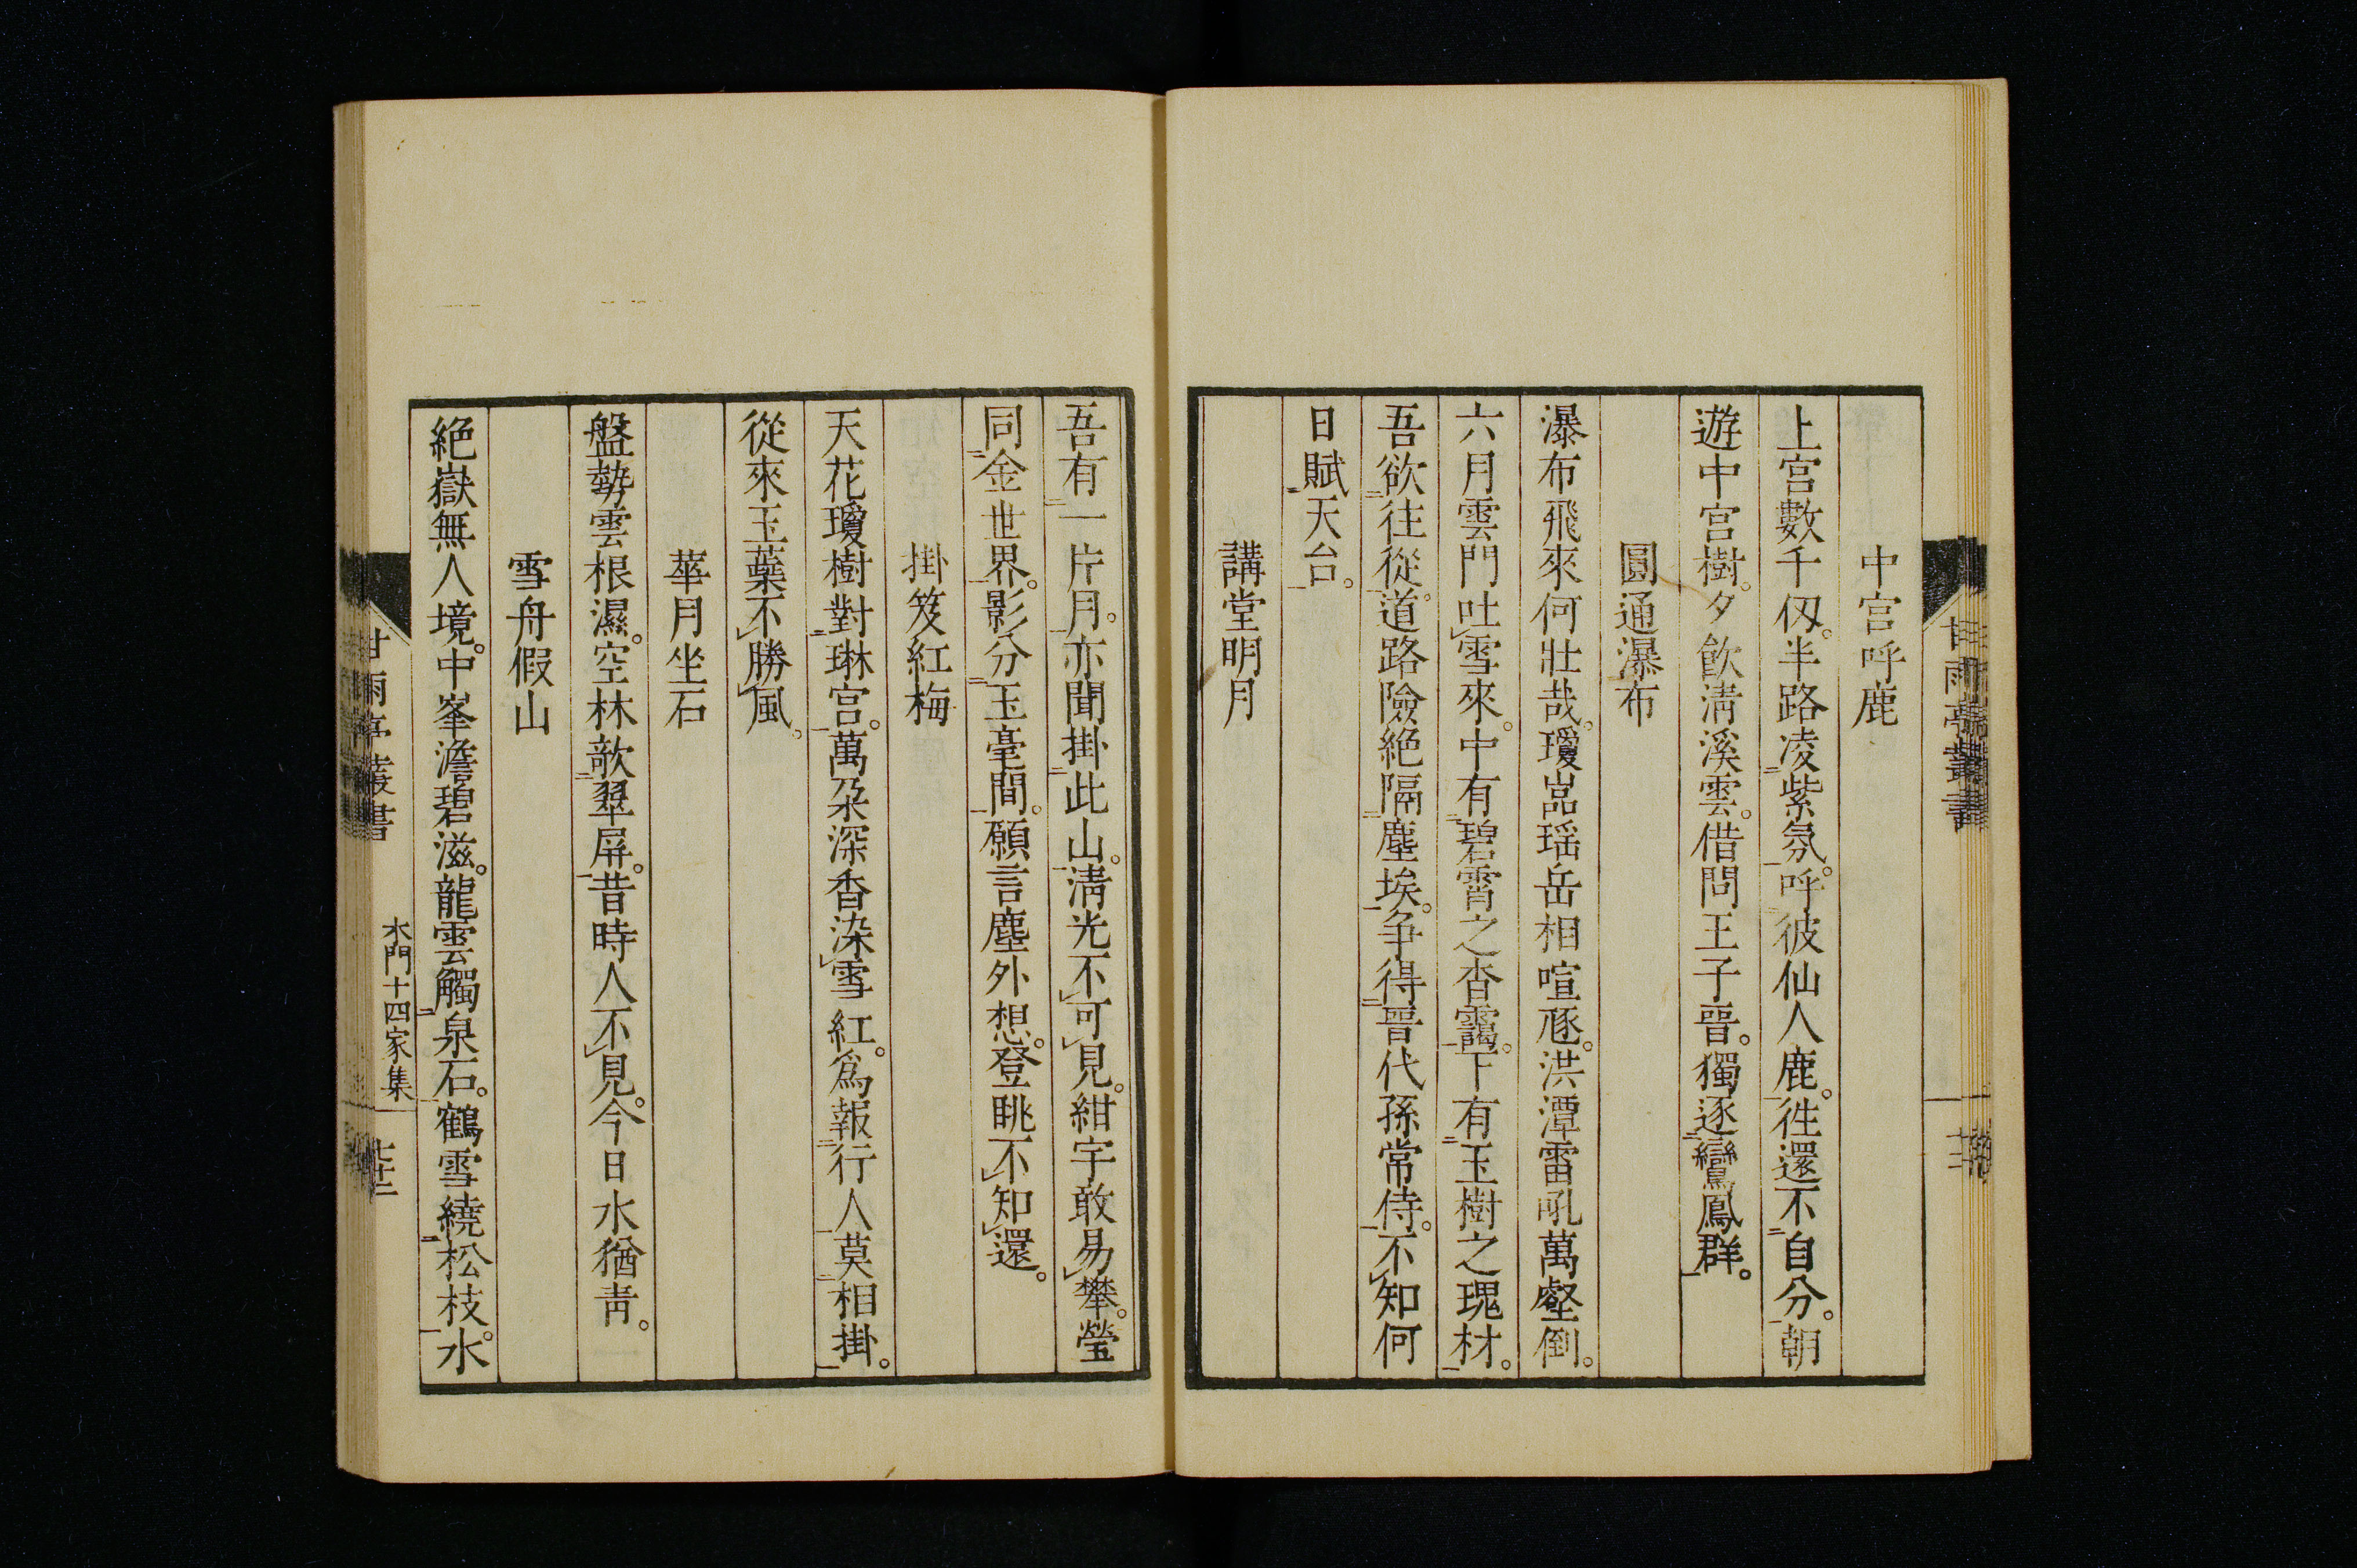 中宮呼鹿
上宮數千仭。半路凌紫氛。呼彼仙人鹿。徃還不自分。朝
遊中宮樹。夕飮淸溪雲。借問王子晉。獨逐鸞鳳群。
圓通瀑布
瀑布飛來何壯哉。瓊嵓瑶岳相喧豗。洪潭雷吼萬壑倒。
六月雲門吐雪來。中有碧霄之杳靄。下有玉樹之瑰材。
吾欲往從。道路險絶隔塵埃。争得晉代孫常侍。不知何
日賦天台。
講堂明月
吾有一片月。亦聞掛此山。淸光不可見。紺宇敢易攀。瑩
同金世界。影分玉毫間。願言塵外想。登眺不知還。
掛笈紅梅
天花瓊樹對琳宮。萬朶深香染雪紅。爲報行人莫相掛。
從來玉蘂不勝風。
華月坐石
盤勢雲根濕。空林欹翠屏。昔時人不見。今日水猶靑。
雪舟假山
絶嶽無人境。中峯澹碧滋。龍雲觸泉石。鶴雪繞松枝。水
甘雨亭叢書
木門十四家集